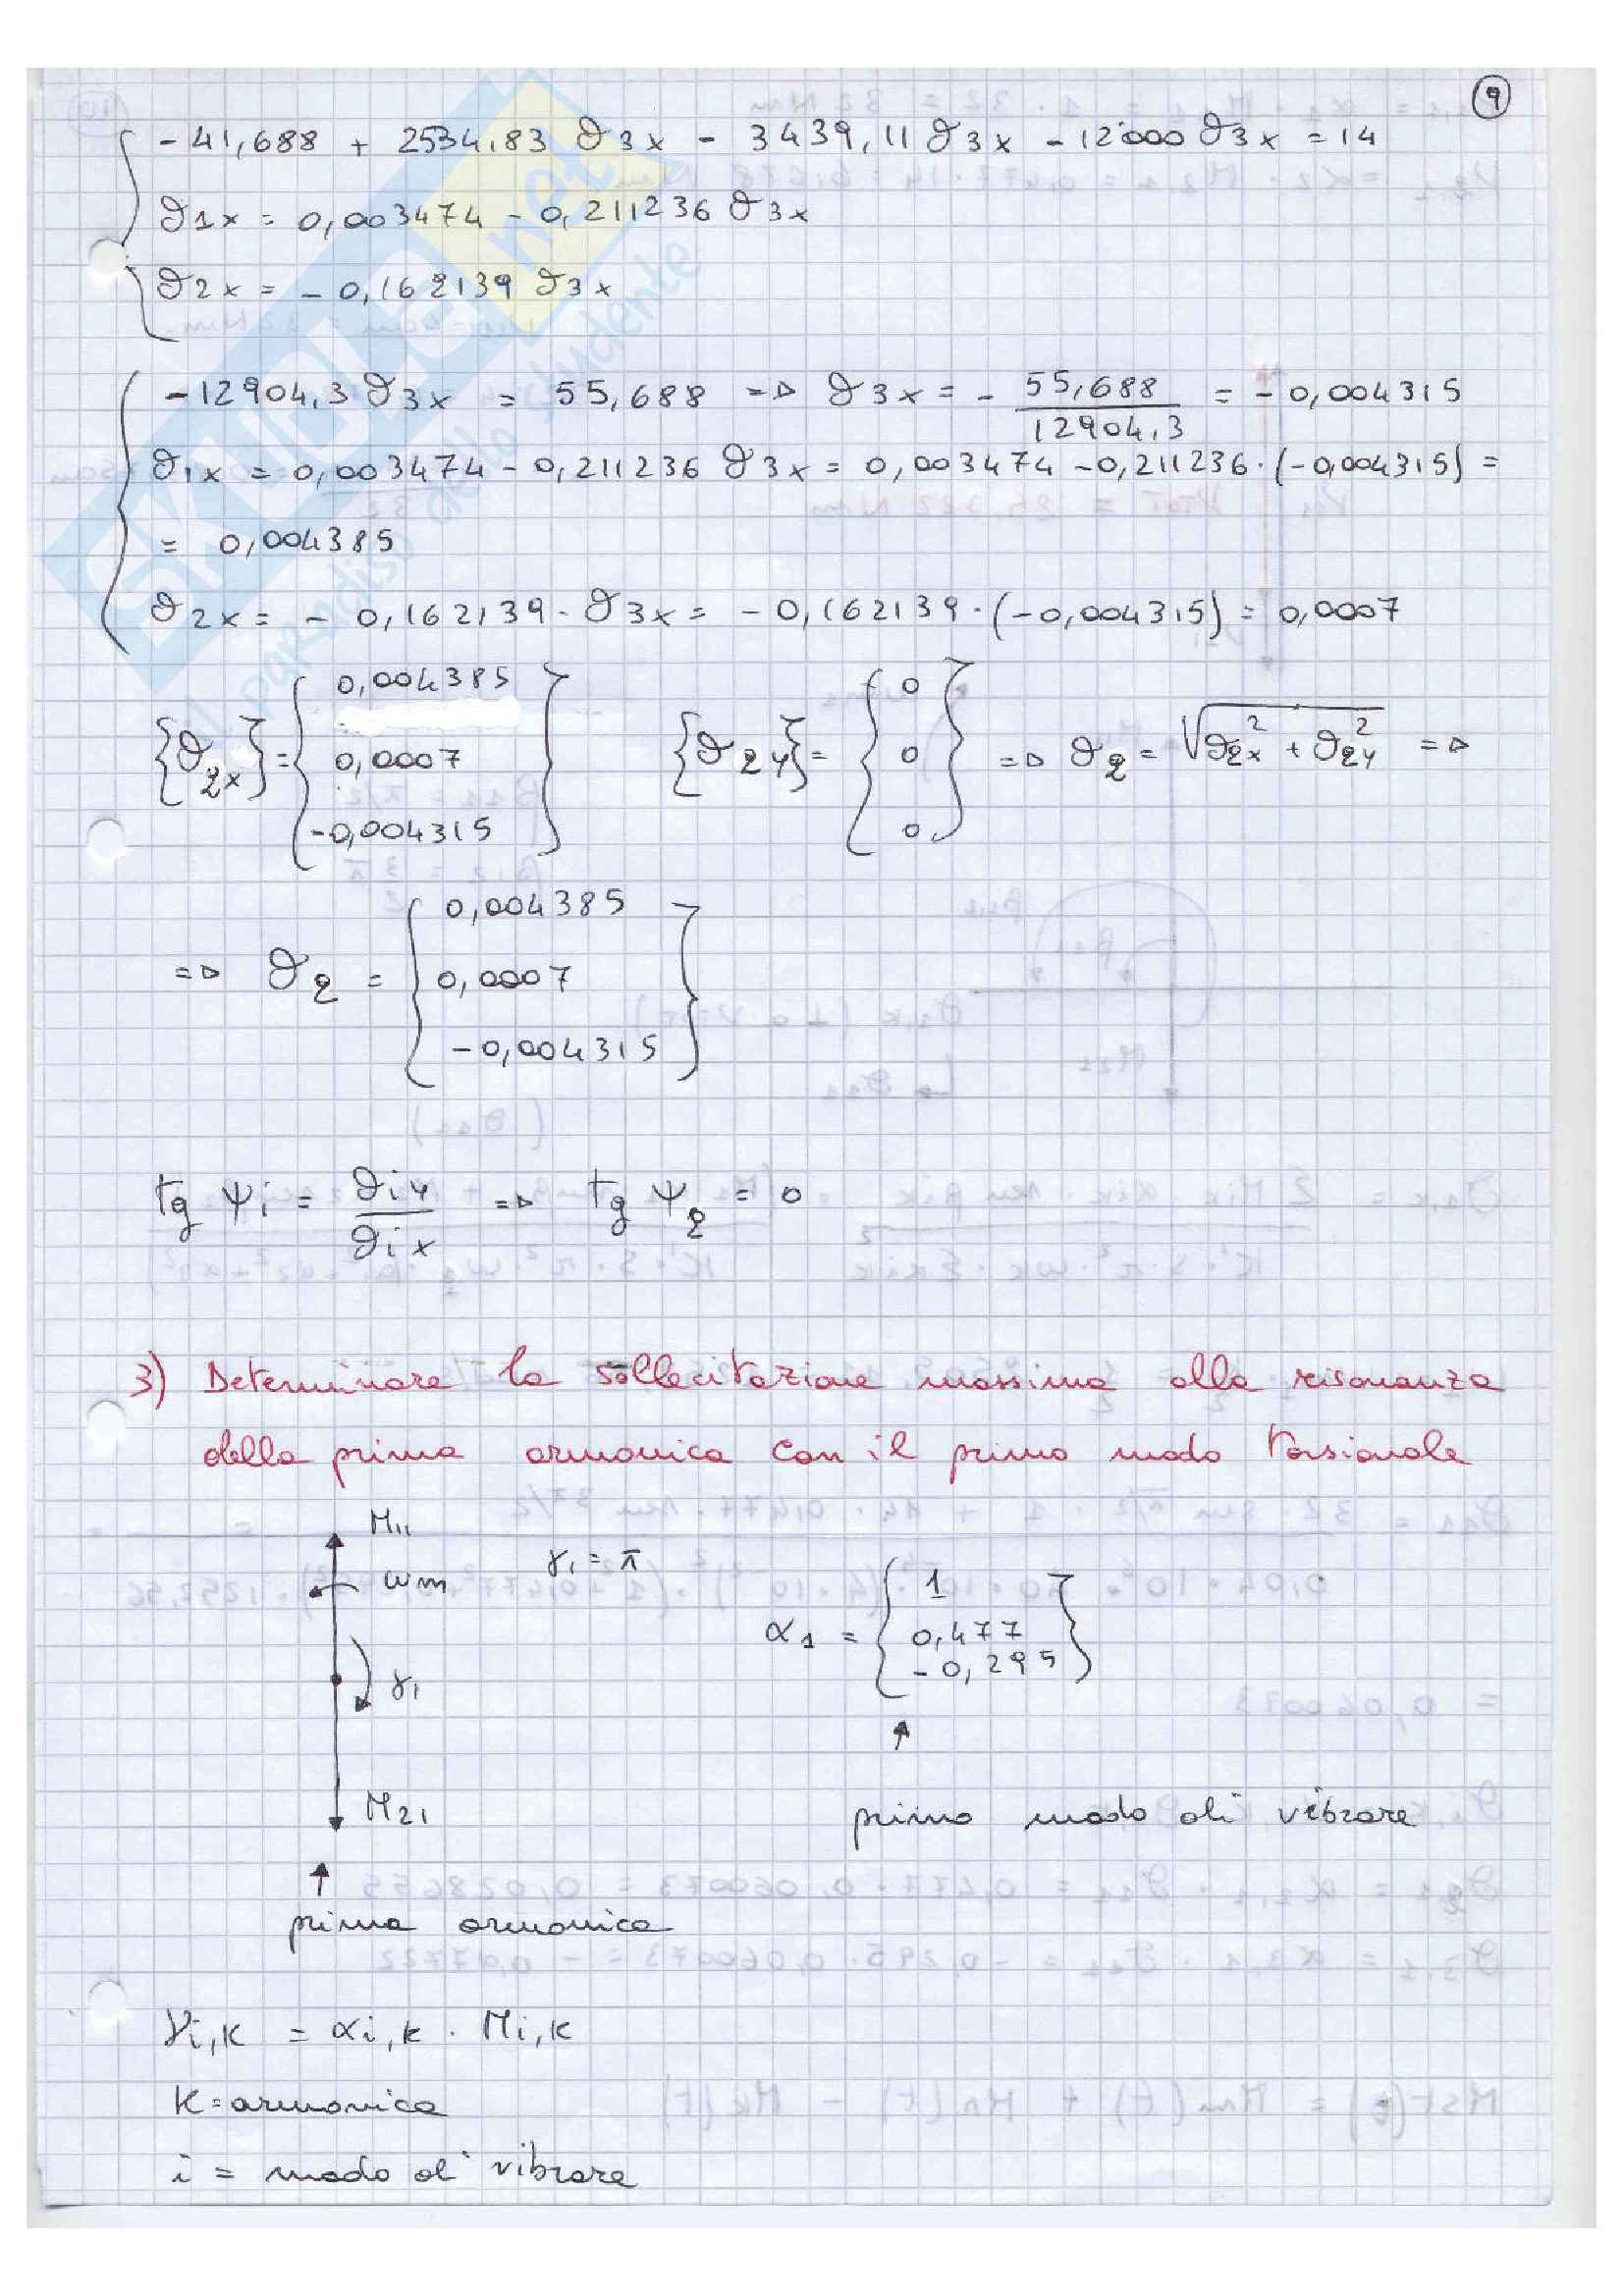 9
- 41,688 + 2534,83 ϑ3x - 3439,11 ϑ3x - 12000 ϑ3x = 14
ϑ1x = 0,003474 - 0,211236 ϑ3x
ϑ2x = - 0,162139 ϑ3x
-12904,3 ϑ3x = 55,688 => ϑ3x = - 55,688 / 12904,3 = - 0,004315
ϑ1x = 0,003474 - 0,211236 ϑ3x = 0,003474 - 0,211236 · (-0,004315) =
= 0,004385
ϑ2x = - 0,162139 · ϑ3x = - 0,162139 · (-0,004315) = 0,0007
{ϑ2x} = { 0,004385 0,0007 -0,004315 } {ϑ2y} = { 0 0 0 } => ϑ2 = √(ϑ2x² + ϑ2y²) =>
=> ϑ2 = { 0,004385 0,0007 -0,004315 }
tg ψi = ϑiy / ϑix => tg ψ2 = 0
3) Determinare la sollecitazione massima alla risonanza
della prima armonica con il primo modo torsionale
M11
ωm
γ1 = π
γ1
M21
prima armonica
α1 = { 1 0,477 -0,295 }
primo modo di vibrare
Vi,k = αi,k · Mi,k
k = armonica
i = modo di vibrare
SKUOLA.net
il paradiso dello studente